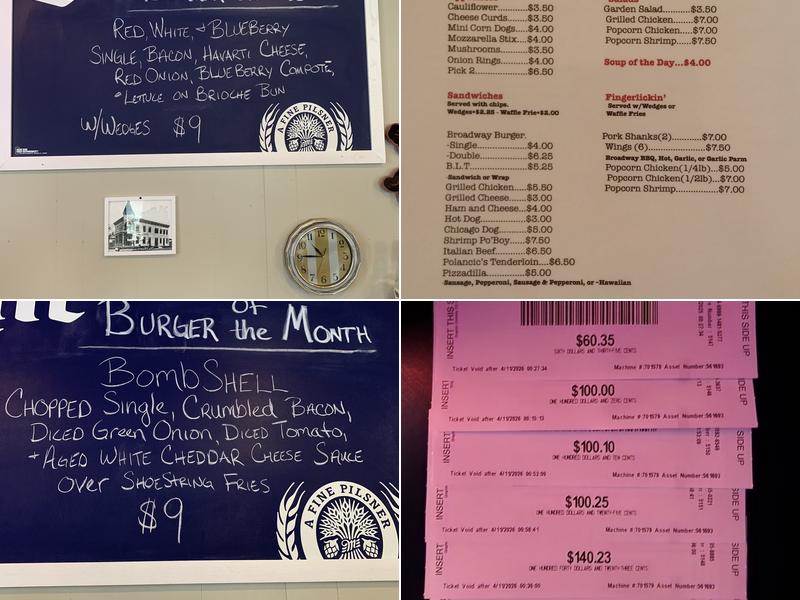 RED, WHITE, + BLUEBERRY
SINGLE, BACON, HAVARTI CHEESE,
RED ONION, BLUEBERRY COMPOTE,
LETTUCE ON BRIOCHE BUN
W/WEDGES $9
A FINE PILSNER
Cauliflower $3.50
Cheese Curds $3.50
Mini Corn Dogs $4.00
Mozzarella Stix $4.00
Mushrooms $3.50
Onion Rings $4.00
Pick 2 $6.50
Sandwiches
Served with chips.
Wedges+$2.25 - Waffle Fries+$2.00
Broadway Burger.
-Single $4.00
-Double $6.25
B.L.T $5.25
-Sandwich or Wrap
Grilled Chicken $5.50
Grilled Cheese $3.00
Ham and Cheese $4.00
Hot Dog $3.00
Chicago Dog $5.00
Shrimp Po'Boy $7.50
Italian Beef $6.50
Polancic's Tenderloin $6.50
Pizzadilla $5.00
-Sausage, Pepperoni, Sausage & Pepperoni, or -Hawaiian
Garden Salad $3.50
Grilled Chicken $7.00
Popcorn Chicken $7.00
Popcorn Shrimp $7.50
Soup of the Day...$4.00
Fingerlickin'
Served w/Wedges or
Waffle Fries
Pork Shanks(2) $7.00
Wings (6) $7.50
Broadway BBQ, Hot, Garlic, or Garlic Parm
Popcorn Chicken(1/4lb) $5.00
Popcorn Chicken(1/2lb) $7.00
Popcorn Shrimp $7.00
BURGER OF the MONTH
BOMBSHELL
CHOPPED SINGLE, CRUMBLED BACON,
DICED GREEN ONION, DICED TOMATO,
+ AGED WHITE CHEDDAR CHEESE SAUCE
OVER SHOESTRING FRIES
$9
A FINE PILSNER
INSERT THIS S
THIS SIDE UP
$60.35
SIXTY DOLLARS AND THIRTY-FIVE CENTS
Ticket Void after 4/19/2026 00:27:34 Machine #:701579 Asset Number:561693
INSERT
SIDE UP
$100.00
ONE HUNDRED DOLLARS AND ZERO CENTS
Machine #:701579 Asset Number:561693
INSERT
SIDE UP
$100.10
ONE HUNDRED DOLLARS AND TEN CENTS
Machine #:701579 Asset Number:561693
INSERT
SIDE UP
$100.25
ONE HUNDRED DOLLARS AND TWENTY-FIVE CENTS
Machine #:701579 Asset Number:561693
INSERT
SIDE UP
$140.23
ONE HUNDRED FORTY DOLLARS AND TWENTY-THREE CENTS
Machine #:701579 Asset Number:561693